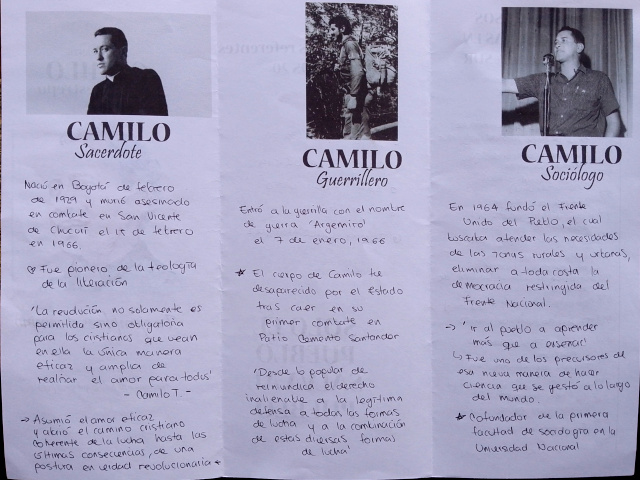 CAMILO
Sacerdote
Nació en Bogotá de febrero
de 1929 y murió asesinado
en combate en San Vicente
de Chucurí el 15 de febrero
en 1966.
Fue pionero de la teología
de la liberación
'La revolución no solamente es
permitida sino obligatoria
para los cristianos que vean
en ella la única manera
eficaz y amplia de
realizar el amor para todos'
- Camilo T. -
→ Asumió el amor eficaz
y abrió el camino cristiano
coherente de la lucha hasta las
últimas consecuencias, de una
postura en verdad revolucionaria
CAMILO
Guerrillero
Entró a la guerrilla con el nombre
de guerra 'Argemiro'
el 7 de enero, 1966
★ El cuerpo de Camilo fue
desaparecido por el estado
tras caer en su
primer combate en
Patio Cemento Santander
'Desde lo popular de
reivindica el derecho
inalienable a la legítima
defensa a todas las formas
de lucha y a la combinación
de estas diversas formas
de lucha'
CAMILO
Sociólogo
En 1964 fundó el Frente
Unido del Pueblo, el cual
buscaba atender las necesidades
de las zonas rurales y urbanas,
eliminar a toda costa la
democracia restringida del
Frente Nacional.
→ 'Ir al pueblo a aprender
más que a enseñar'
↳ Fue uno de los precursores de
esa nueva manera de hacer
ciencia que se gestó a lo largo
del mundo.
★ Cofundador de la primera
facultad de sociología en la
Universidad Nacional